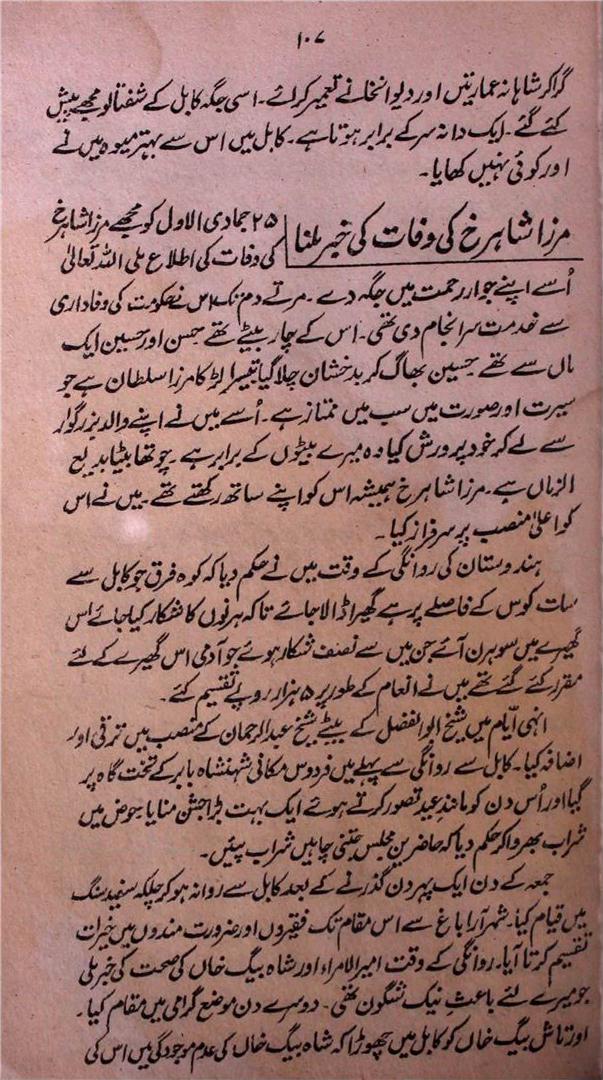 ۱۰۷
گرا کر شاہانہ عمارتیں اور دیوانخانے تعمیر کرائے۔ اسی جگہ کابل کے شفتالو مجھے پیش
کئے گئے۔ ایک دانہ سر کے برابر ہوتا ہے۔ کابل میں اس سے بہتر میوہ میں نے
اور کوئی نہیں کھایا۔
مرزا شاہرخ کی وفات کی خبر ملنا
۲۵ جمادی الاول کو مجھے مرزا شاہرخ
کی وفات کی اطلاع ملی اللہ تعالیٰ
اُسے اپنے جوار رحمت میں جگہ دے۔ مرتے دم تک اس نے حکومت کی وفاداری
سے خدمت سرانجام دی تھی۔ اس کے چار بیٹے تھے حسن اور حسین ایک
ماں سے تھے حسین بھاگ کر بدخشان چلا گیا تیسرا لڑکا مرزا سلطان ہے جو
سیرت اور صورت میں سب میں ممتاز ہے۔ اُسے میں نے اپنے والد بزرگوار
سے لے کر خود پرورش کیا وہ میرے بیٹوں کے برابر ہے۔ چوتھا بیٹا بدیع
الزماں ہے۔ مرزا شاہرخ ہمیشہ اس کو اپنے ساتھ رکھتے تھے۔ میں نے اس
کو اعلیٰ منصب پر سرفراز کیا۔
ہندوستان کی روانگی کے وقت میں نے حکم دیا کہ کوہ فرق جو کابل سے
سات کوس کے فاصلے پر ہے گھیرا ڈالا جائے تاکہ ہرنوں کا شکار کیا جائے اس
گھیرے میں سو ہرن آئے جن میں سے نصف شکار ہوئے جو آدمی اس گھیرے کے لئے
مقرر کئے گئے تھے میں نے انعام کے طور پر ۵ ہزار روپے تقسیم کئے۔
انہی ایّام میں شیخ ابوالفضل کے بیٹے شیخ عبدالرحمان کے منصب میں ترقی اور
اضافہ کیا۔ کابل سے روانگی سے پہلے میں فردوس مکانی شہنشاہ بابر کے تخت گاہ پر
گیا اور اُس دن کو مانند عید تصور کرتے ہوئے ایک بہت بڑا جشن منایا حوض میں
شراب بھروا کر حکم دیا کہ حاضرین مجلس جتنی چاہیں شراب پیئیں۔
جمعہ کے دن ایک پہر دن گذرنے کے بعد کابل سے روانہ ہو کر جلکہ سفید سنگ
میں قیام کیا۔ شہر آرا باغ سے اس مقام تک فقیروں اور ضرورت مندوں میں خیرات
تقسیم کرتا آیا۔ روانگی کے وقت امیر الامراء اور شاہ بیگ خاں کی صحت کی خبر ملی
جو میرے لئے باعثِ نیک شگون تھی۔ دوسرے دن موضع گرامی میں مقام کیا۔
اور تاش بیگ خاں کو کابل میں چھوڑا کہ شاہ بیگ خاں کی عدم موجودگی میں اس کی